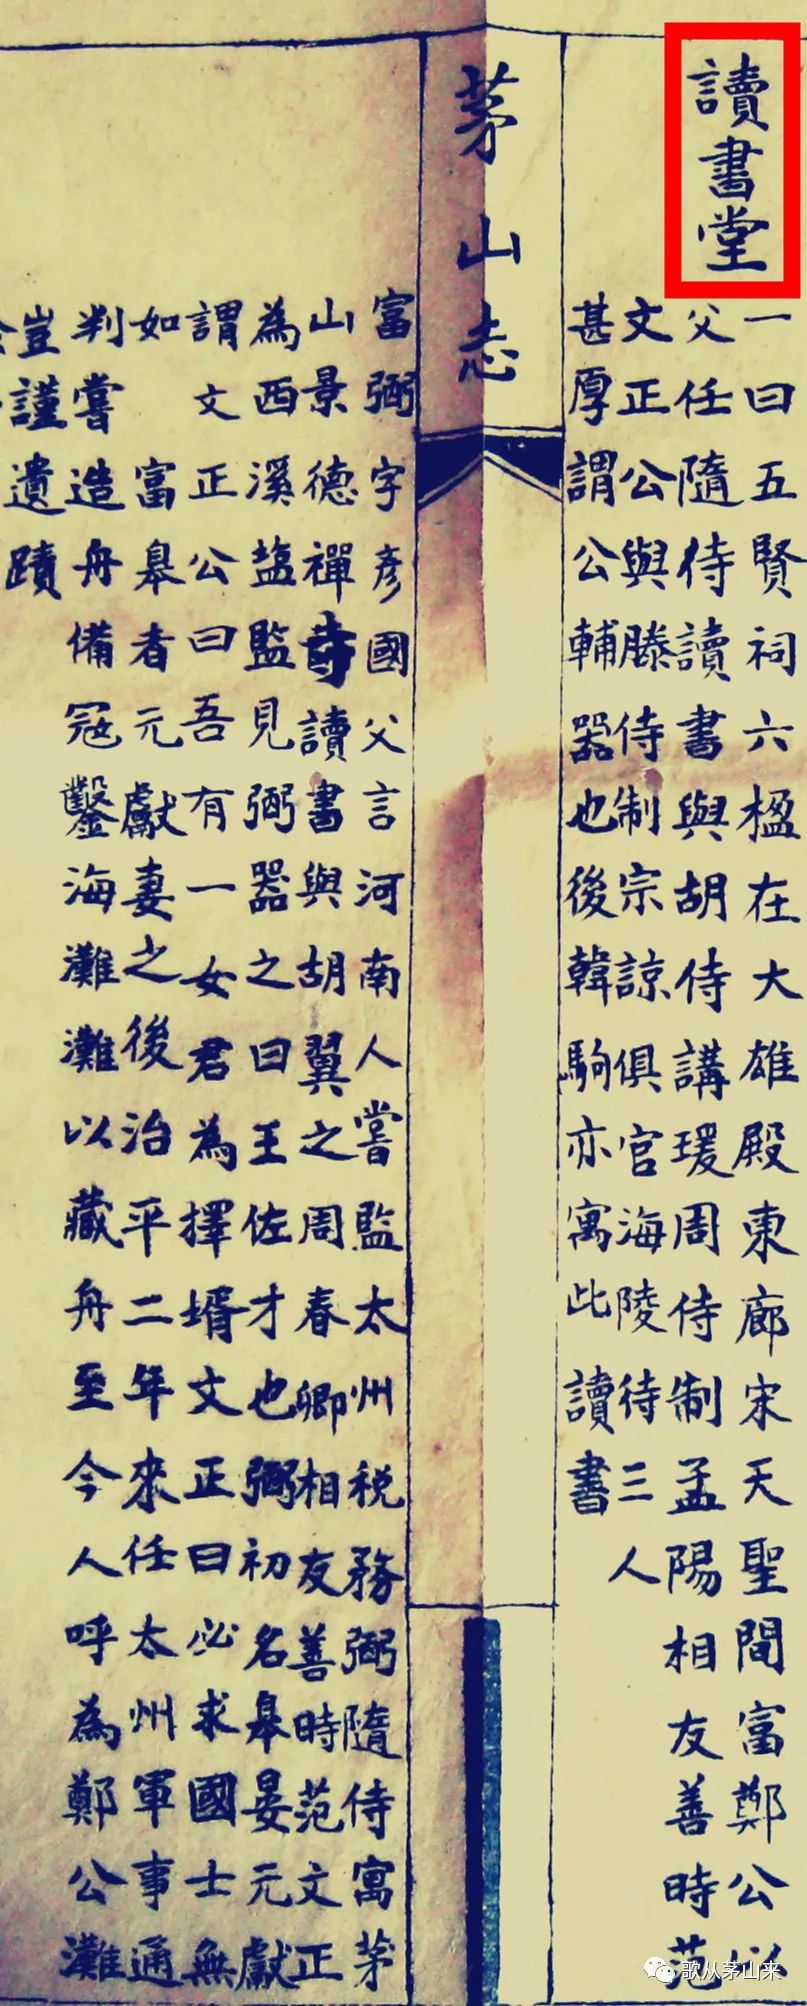 讀書堂
一曰五賢祠六楹在大雄殿東廊宋天聖間富鄭公以
父任隨侍讀書與胡侍講瑗周侍制孟陽相友善時范
文正公與滕侍制宗諒俱官海陵待三人
甚厚謂公輔器也後韓駒亦寓此讀書
茅山志
富弼字彥國父言河南人嘗監太州税務弼隨侍寓茅
山景德禪寺讀書與胡翼之周春卿相友善時范文正
為西溪盐監見弼器之曰王佐才也弼初名皋晏元獻
謂文正公曰吾有一女君為擇壻文正曰必求國士無
如富皋者元獻妻之後治平二年來任太州軍事通
判嘗造舟備寇鑿海灘灘以藏舟至今人呼為鄭公灘
豈謹遺蹟
歌从茅山来